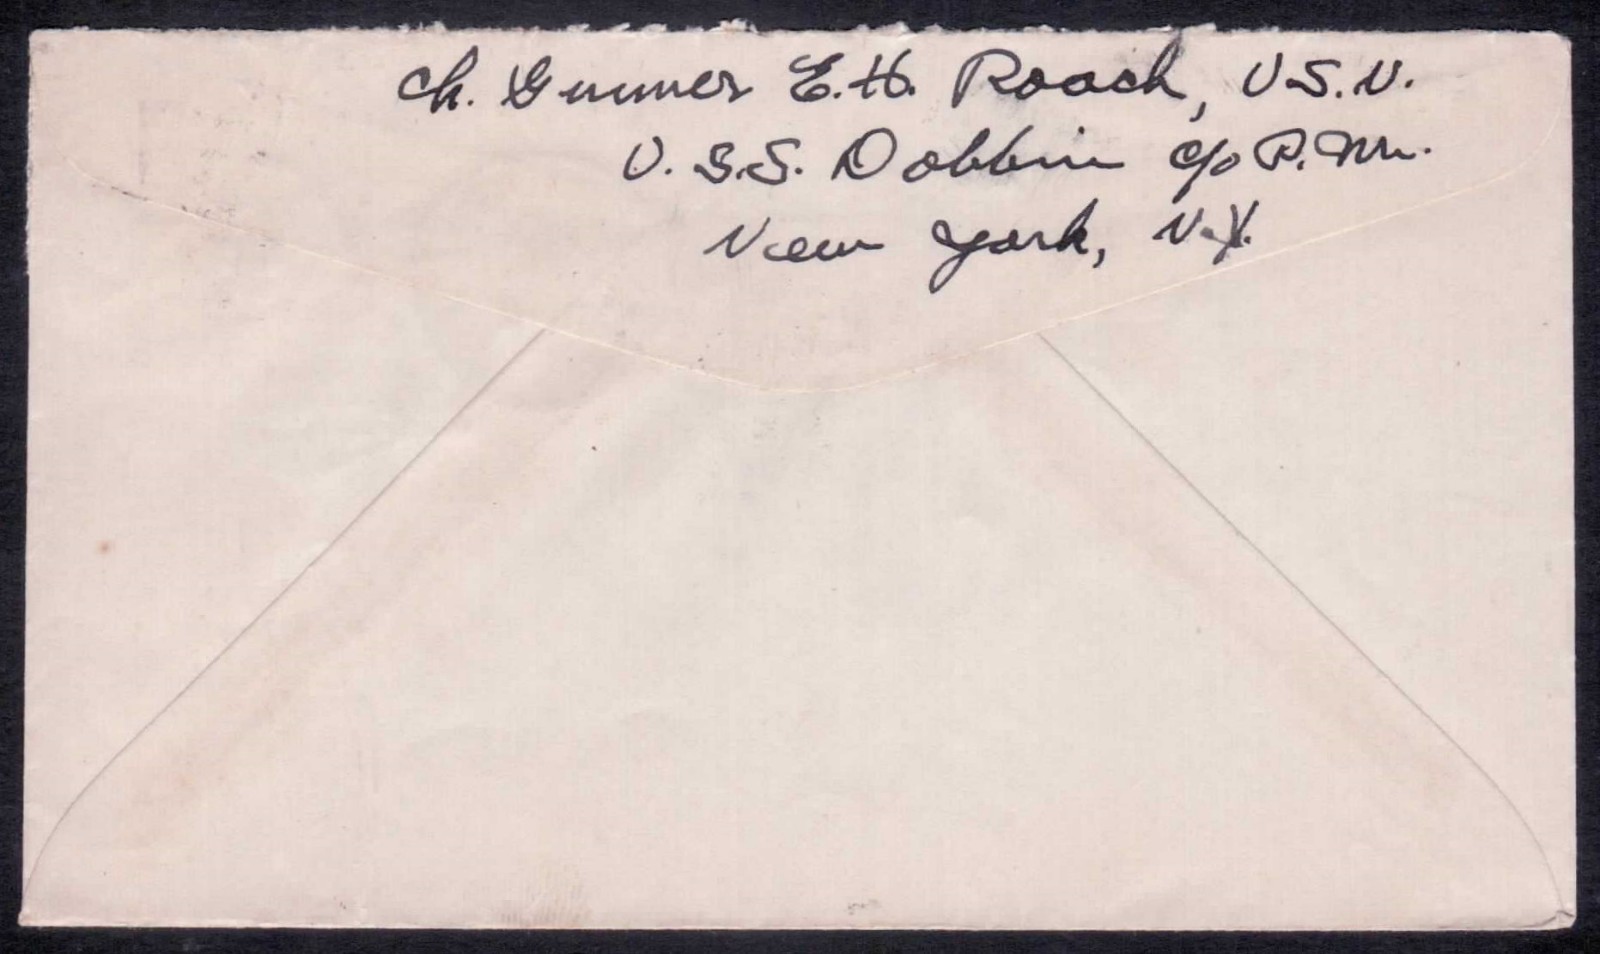 Ch. Gunner E.H. Roach, U.S.N.
U.S.S. Dobbin c/o P.M.
New York, N.Y.